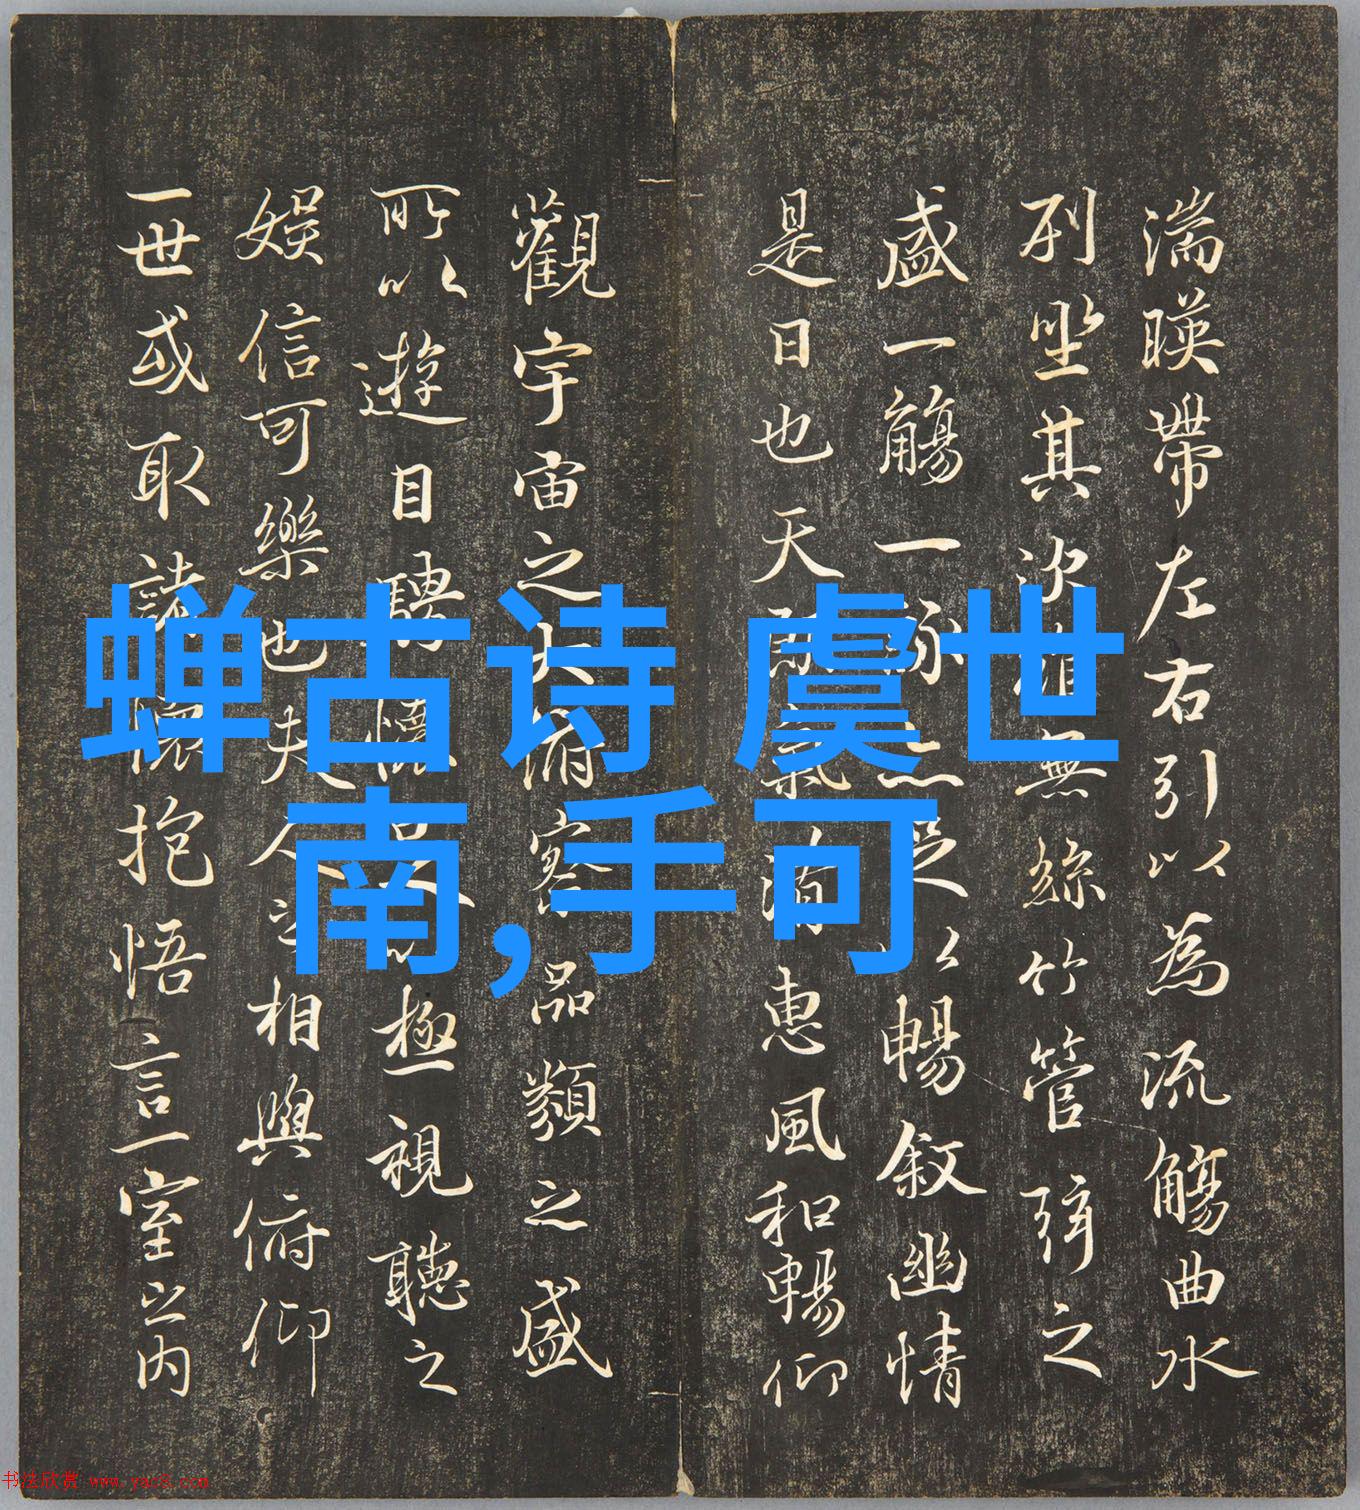 湍暎帶左右引以為流觴曲水
列坐其次雖無絲竹管弦之
盛一觴一詠亦足以暢敘幽情
是日也天朗氣清惠風和暢仰
觀宇宙之大俯察品類之盛
所以遊目騁懷足以極視聽之
娛信可樂也夫人之相與俯仰
一世或取諸懷抱悟言一室之內
蝉古诗 虞世
南,手可
书法欣赏 www.yac8.com